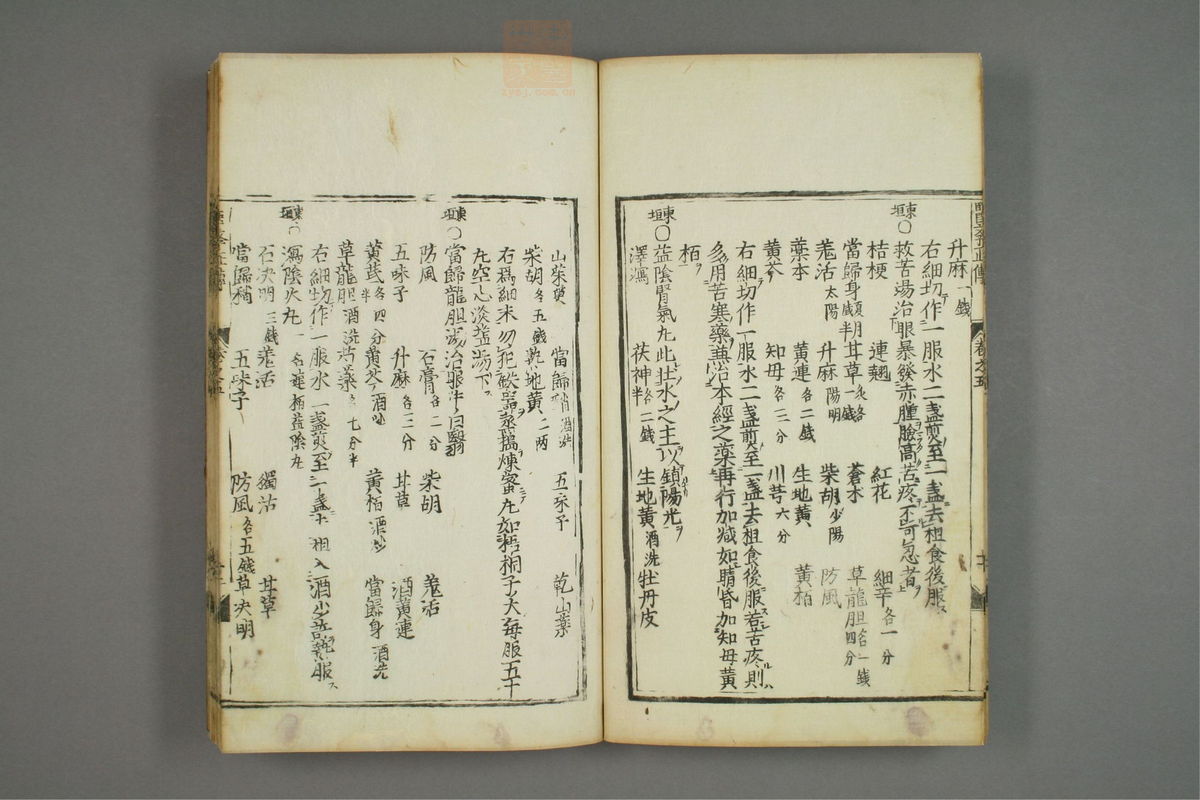 升麻一錢
右細切作一服水二盞煎至一盞去柤食後服
東垣〇救苦湯治眼暴發赤腫瞼高苦疼不可忍者
桔梗 連翹 紅花 細辛各一分
當歸身夏月減半 甘草炙各一錢 蒼朮 草龍胆各一錢四分
羗活太陽 升麻陽明 柴胡少陽 防風
藁本 黄連各二錢 生地黄 黄栢
黄芩 知母各三分 川芎六分
右細切作一服水二盞煎至一盞去柤食後服若苦疼則
多用苦寒藥兼治本經之藥再行加减如睛昏加知母黄
栢
東垣〇益陰腎氣丸此壮水之主以鎮陽光
澤瀉 茯神各二錢半 生地黄酒洗 牡丹皮
山茱萸 當歸稍酒洗 五味子 乾山藥
柴胡各五錢 熟地黄二两
右爲細末勿犯鉄器煉蜜丸如梧桐子大每服五十
丸空心淡盐湯下
東垣〇當歸龍胆湯治眼中白翳
防風 石膏各二分 柴胡 羗活
五味子 升麻各三分 甘草 酒黄連
黄芪各四分半 黄芩酒炒 黄栢酒炒 當歸身酒洗
草龍胆酒洗 芍藥各七分半
右細切作一服水一盞煎至一盞去柤入酒少許熱服
東垣〇瀉陰火丸一名連栢益陰丸
石决明三錢 羗活 獨活 甘草
當歸稍 五味子 防風各五錢 草决明